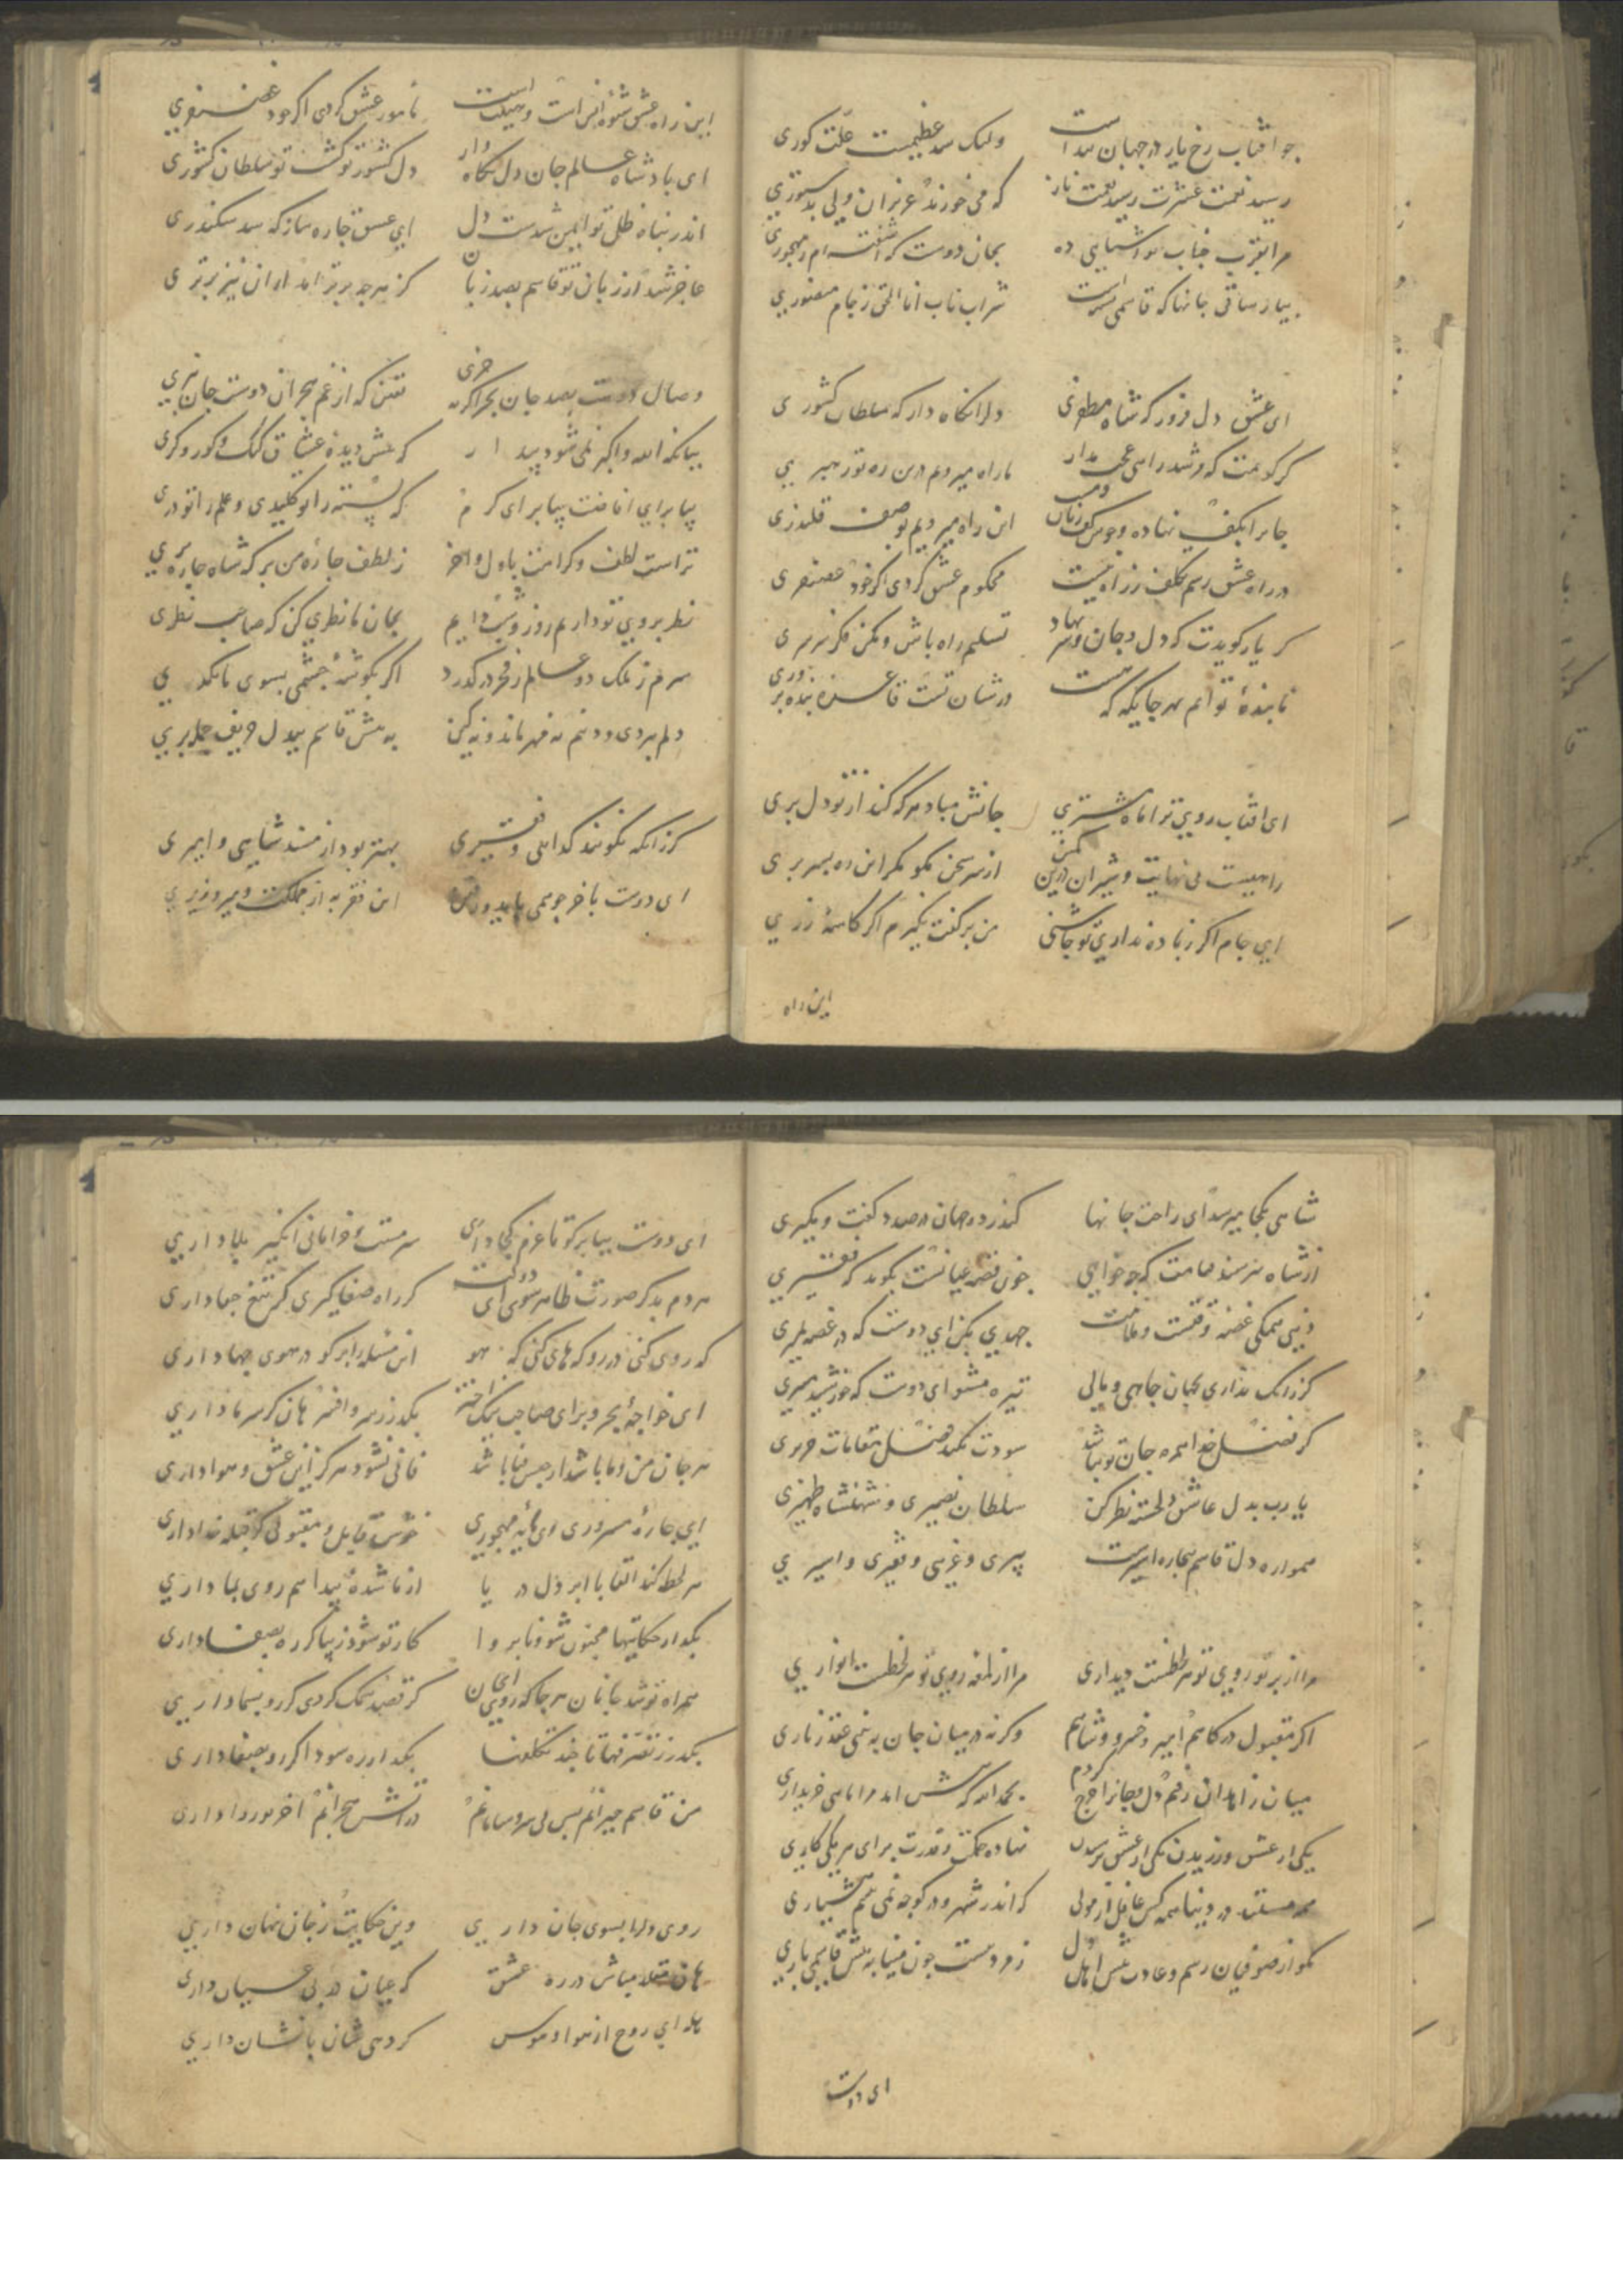 چو آفتاب رخ یار در جهان پیداست ولیک سد عظیمست علت کوری
رسید نعمت عشرت رسید نعمت ناز که می خورند عزیزان ولی بدستوری
مرا بقرب جناب تو آشنایی ده بجان دوست که آشفته ام ز مهجوری
بیار ساقی جانها که قاسمی شراب ناب انا الحق ز جام منصوری
ای عشق دل فروز که شاه مظفری دلرا نگاه دار که سلطان کشوری
ما راه میرویم درین ره تو رهبری
جانرا بکف نهاده و این راه میرویم بوصف قلندری
در راه عشق رسم تکلف ز راه نیست محکوم عشق گردی اگر خود غضنفری
گر یار گویدت که دل و جان و سر تسلیم راه باش و مکن فکر سرسری
تا بنده توایم بهر جایگه که هست در شان تست قاعده بنده پروری
ای آفتاب روی ترا ماه مشتری جانش مباد هر که کند از تو دل بری
راهیست بی نهایت و شیران درین کمین از سر سخن مگو مگر این ره بسر بری
ای جام اگر زباده نداری تو چاشنی من برکفت نگیرم اگر کاسه زری
این راه
این راه عشق شیوه نامور عشق گردی اگر خود غضنفری
ای پادشاه عالم جان دل نگاه دار دل کشور تو گشت تو سلطان کشوری
اندر پناه ظل تو ایمن شدست دل ای عشق چاره ساز که سد سکندری
عاجز شد از زبان تو قاسم بصد زبان کز هرچه برتر آمد از آن نیز برتری
وصال دوست بصد جان بخر اگر خری که از غم هجران دوست جان نبری
ببانگ الله و اکبر نمی شود بیدار که عشق دیده عشاق گنگ و کور و کری
بیا برای اقامت بیا برای کرم که بسته را تو کلیدی و علم را تو دری
تراست لطف و کرامت باول و آخر ز لطف چاره من بر که شاه چاره بری
نظر بروی تو داریم روز و شب دایم بجان ما نظری کن که صاحب نظری
سرم ز ملک دو عالم ز فخر درگذرد اگر بگوشه چشمی بسوی ما نگری
دلم بردی و دنم نه مهر ماند و نه کین به پیش قاسم بیدل حریف حمله بری
گر زانکه نکونند گدایی و فقیری بهتر بود از مسند شاهی و امیری
ای دوست بآخر چو همی باید این فقر به از مملکت و میر و وزیری
شاهی بکجا میرسد ای راحت جانها گذر در دو جهان در صدد گفت و بگیری
از شاه نپرسند قیامت که چه خواهی چون قصه عیانست بگوید که فقیری
دنیی همگی غصه و قصست و ملامت جهدی بکن ای دوست که در غصه نمیری
گر زانک نداری بجهان جاهی و مالی تیره مشو ای دوست که خورشید منیری
گر فضل خدا همره جان تو نباشد سودت نکند فضل مقامات حریری
یا رب بدل عاشق دلخسته نظر کن سلطان نصیری و شهنشاه ظهیری
همواره دل قاسم بیچاره اسیرست پیری و غریبی و فقیری و اسیری
مرا از پرتو روی تو هر لحظست دیداری مرا از لمعه روی تو هر لحظست انواری
اگر مقبول درگاهم امیر و خسرو و شاهم وگرنه در میان جان به بینی عقد زناری
میان زاهدان رفتم دل و جانرا حرج کردم بحمدالله که پیش آمد مرا ماهی خریداری
یکی از عشق ورزیدن یکی از عشق ترسیدن نهاده حکمت و قدرت برای هر یکی کاری
همه مستند در دنیا همه کس غافل از مولی که اندر شهر و در کوچه نمی بینم هشیاری
مگو از صوفیان رسم و عادت پیش اهل دل
ای دوست
ای دوست بیا برگو تا عزم کجا داری سرمست و خرامانی انگیز بلا داری
گر راه صفا گیری کم تیغ جفا داری
گه روی کنی در رو گه های کنی گه هو این مسئله را برگو در هوی چها داری
ای خواجه بحر و بر ای صاحب نیک اختر بگذر ز سر و افسر هان گر سر ما داری
هر جان من و ما باشد از جنس فنا باشد فانی نشود هرگز این عشق و هوا داری
ای چاره مسروری ای مایه مهجوری خوش قابل و مقبولی گر قبله خدا داری
هر لحظه کند القا با ابر دل دریا از ما شده پیدا هم روی بما داری
بگذار حکایتها مجنون شو و نابروا کار تو شود زیبا گر ره بصفا داری
همراه تو شد جانان هر جا که روی ای جان گر قصد سمک کردی گر رو بسما داری
بگذر ز تصرفها تا چند تکلفها بگذار ره سودا گر رو بصفا داری
من قاسم حیرانم بس بی سر و سامانم در آتش هجرانم آخر نه روا داری
روی دلها بسوی جان داری وین حکایت ز جان نهان داری
هان مقلد مباش در ره عشق که عیان در پی بیان داری
هله ای روح از هوا و هوس گر دهی شان بما نشان داری